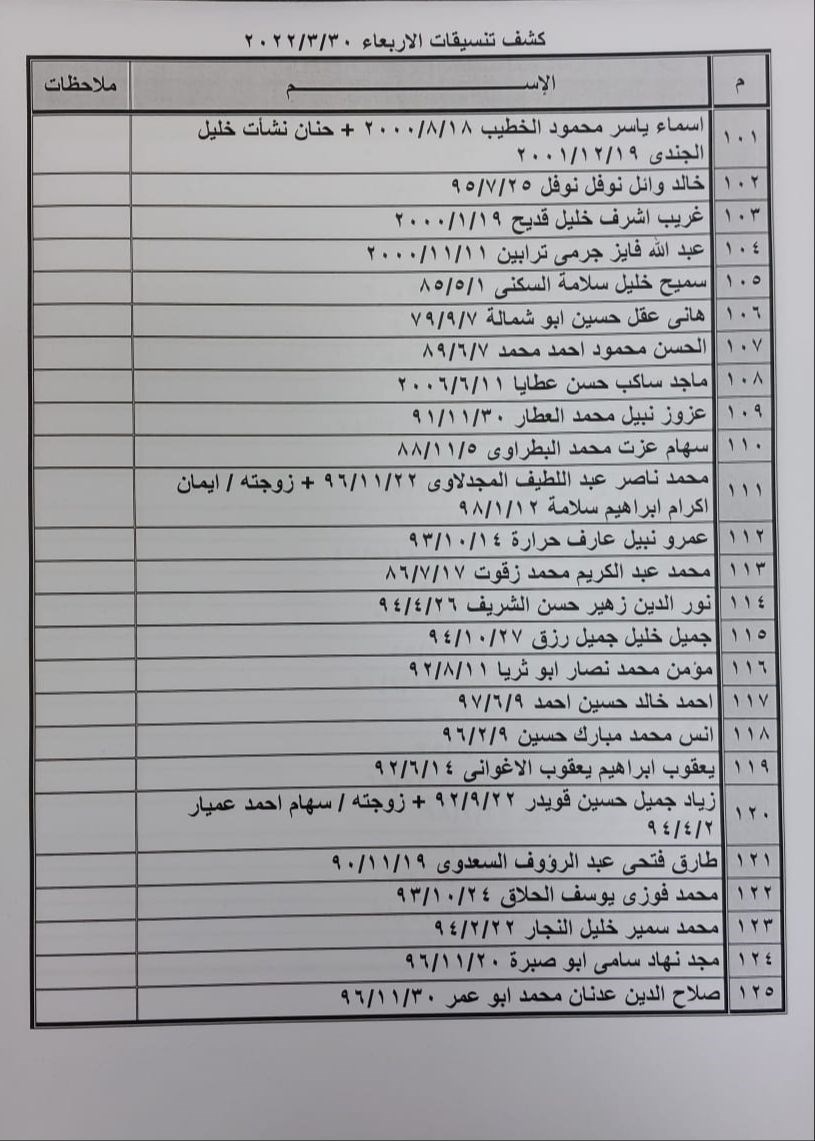 كشف تنسيقات الاربعاء ٢٠٢٢/٣/٣٠
م الإســـــم ملاحظات
١٠١ اسماء ياسر محمود الخطيب ٢٠٠٠/٨/١٨ + حنان نشأت خليل
الجندى ٢٠٠١/١٢/١٩
١٠٢ خالد وائل نوفل نوفل ٩٥/٧/٢٥
١٠٣ غريب اشرف خليل قديح ٢٠٠٠/١/١٩
١٠٤ عبد الله فايز جرمى ترابين ٢٠٠٠/١١/١١
١٠٥ سميح خليل سلامة السكنى ٨٥/٥/١
١٠٦ هانى عقل حسين ابو شمالة ٧٩/٩/٧
١٠٧ الحسن محمود احمد محمد ٨٩/٦/٧
١٠٨ ماجد ساكب حسن عطايا ٢٠٠٦/٦/١١
١٠٩ عزوز نبيل محمد العطار ٩١/١١/٣٠
١١٠ سهام عزت محمد البطراوى ٨٨/١١/٥
١١١ محمد ناصر عبد اللطيف المجدلاوى ٩٦/١١/٢٢ + زوجته / ايمان
اكرام ابراهيم سلامة ٩٨/١/١٢
١١٢ عمرو نبيل عارف حرارة ٩٣/١٠/١٤
١١٣ محمد عبد الكريم محمد زقوت ٨٦/٧/١٧
١١٤ نور الدين زهير حسن الشريف ٩٤/٤/٢٦
١١٥ جميل خليل جميل رزق ٩٤/١٠/٢٧
١١٦ مؤمن محمد نصار ابو ثريا ٩٢/٨/١١
١١٧ احمد خالد حسين احمد ٩٧/٦/٩
١١٨ انس محمد مبارك حسين ٩٦/٢/٩
١١٩ يعقوب ابراهيم يعقوب الاغوانى ٩٢/٦/١٤
١٢٠ زياد جميل حسين قويدر ٩٢/٩/٢٢ + زوجته / سهام احمد عميار
٩٤/٤/٢
١٢١ طارق فتحى عبد الرؤوف السعدوى ٩٠/١١/١٩
١٢٢ محمد فوزى يوسف الحلاق ٩٣/١٠/٢٤
١٢٣ محمد سمير خليل النجار ٩٤/٢/٢٢
١٢٤ مجد نهاد سامى ابو صبرة ٩٦/١١/٢٠
١٢٥ صلاح الدين عدنان محمد ابو عمر ٩٦/١١/٣٠